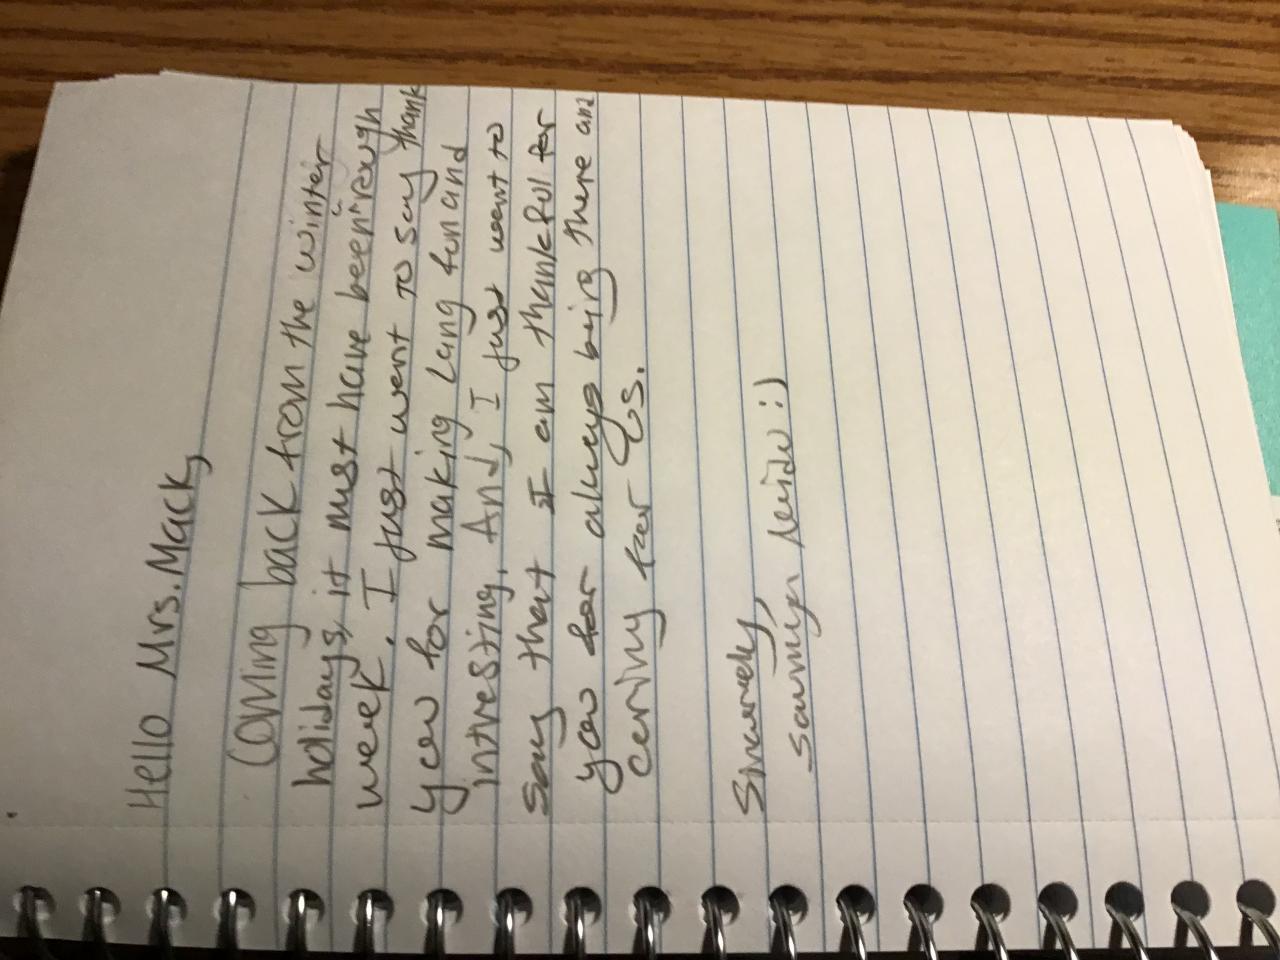 Hello Mrs. Mack,
Coming back from the winter
holidays, it must have been a rough
week. I just want to say thank
you for making Lang fun and
intresting. And, I just want to
say that I am thankful for
you for always being there and
caring for us.
Sincerely,
:)